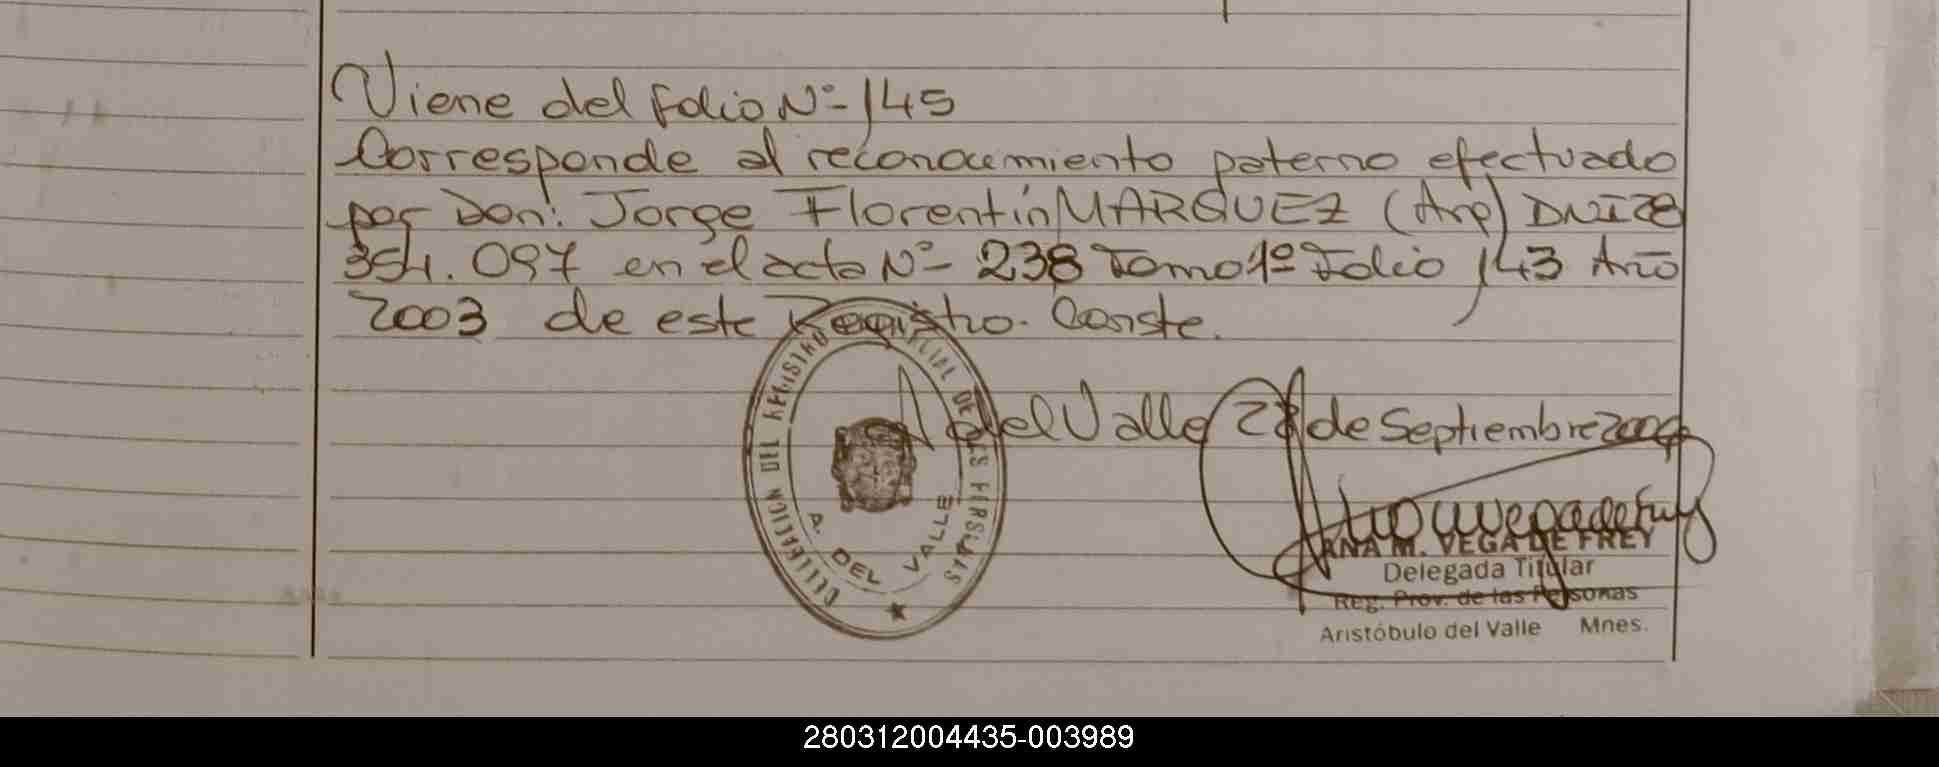 Viene del folio Nº 145
Corresponde al reconocimiento paterno efectuado
por Don: Jorge Florentín MARQUEZ (Arg) DNI 28
354.097 en el acta Nº 238 Tomo 1º Folio 143 Año
2003 de este Registro. Conste.
A del Valle 28 de Septiembre
DELEGACION DEL REGISTRO PROVINCIAL DE LAS PERSONAS
A. DEL VALLE
ANA M. VEGA DE FREY
Delegada Titular
Reg. Prov. de las Personas
Aristóbulo del Valle Mnes.
280312004435-003989